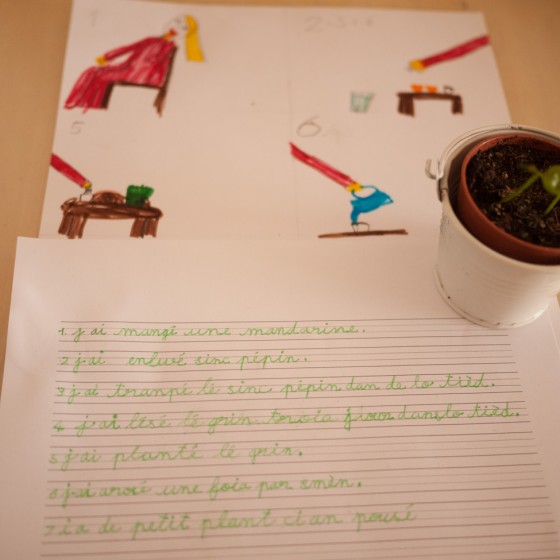 2-3-4
5
6
1 j'ai mangé une mandarine.
2 j'ai enlevé sinc pépin.
3 j'ai tranpé lé sinc pépin dan de lo tièd.
4 j'ai lésé lé grin troia jour dans lo tièd.
5 j'ai planté lé grin.
6 j'ai arosé une foia par smèn.
7 ia de petit plant cian pousé